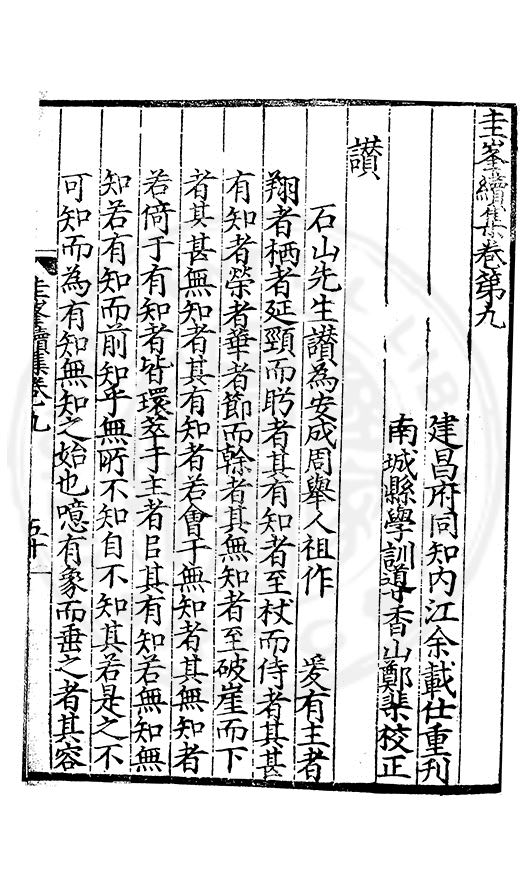 圭峯續集卷第九
建昌府同知內江余載仕重刊
南城縣學訓導香山鄭校正
讃
石山先生讃為安成周舉人祖作　爰有主者
翔者栖者延頸而盻者其有知者至杖而侍者其甚
有知者榮者華者節而幹者其無知者至破崖而下
者其甚無知者其有知者若會于無知者其無知者
若倚于有知者皆環萃于主者㠯其有知若無知無
知若有知而前知乎無所不知自不知其若是之不
可知而為有知無知之始也噫有象而垂之者其容
圭峯續集卷九